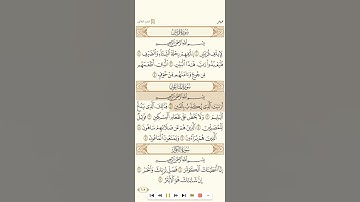 سورة قريش
بسم الله الرحمن الرحيم
لإيلاف قريش ۝ إيلافهم رحلة الشتاء والصيف ۝
فليعبدوا رب هذا البيت ۝ الذي أطعمهم
من جوع وآمنهم من خوف ۝
سورة الماعون
بسم الله الرحمن الرحيم
أرأيت الذي يكذب بالدين ۝ فذلك الذي يدع
اليتيم ۝ ولا يحض على طعام المسكين ۝ فويل
للمصلين ۝ الذين هم عن صلاتهم ساهون ۝
الذين هم يراءون ۝ ويمنعون الماعون ۝
سورة الكوثر
بسم الله الرحمن الرحيم
إنا أعطيناك الكوثر ۝ فصل لربك وانحر ۝
إن شانئك هو الأبتر ۝